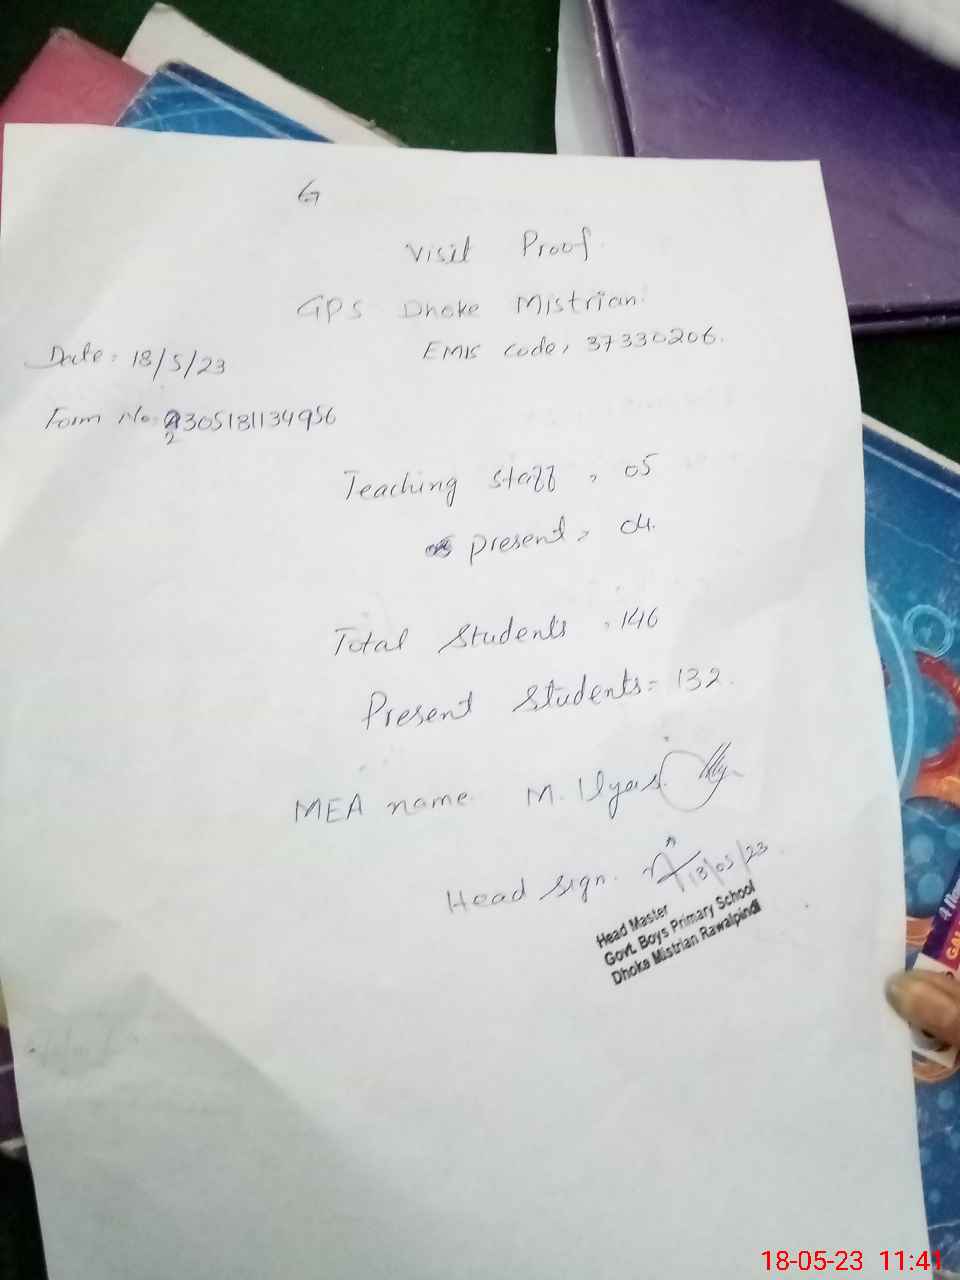 6
Visit Proof.
GPS Dhoke Mistrian.
Date: 18/5/23
EMIS code, 37330206.
Form No: 2305181134956
Teaching staff, 05
present, 04.
Total Students, 146
Present Students = 132.
MEA name. M. Ilyas
Head sign. 18/05/23
Head Master
Govt. Boys Primary School
Dhoke Mistrian Rawalpindi
18-05-23 11:41